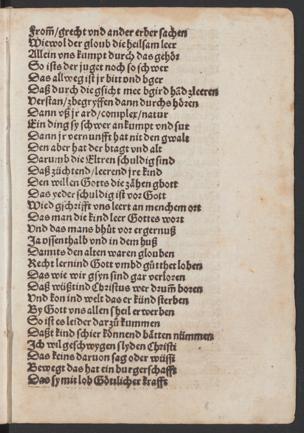 From̃/grecht vnd ander erber sachen
Wiewol der gloub die heilsam leer
Allein vns kumpt durch das gehör
So ists der juget noch so schwer
Das allweg ist jr bitt vnd bger
Daß durch die gsicht mee bgird hãd zleeren
Verstan/zbegryffen dann durchs hören
Dann vß jr ard/complex/natur
Ein ding sy schwer ankumpt vnd sur
Dann jr vernunfft hat nit den gwalt
Den aber hat der btagt vnd alt
Darumb die Eltren schuldig sind
Daß züchtend/leerend jre kind
Den willen Gotts die zähen gbott
Das yeder schuldig ist vor Gott
Wied gschrifft vns leert an menchem ort
Das man die kind leer Gottes wort
Vnd das mans bhüt vor ergernuß
Ja offenthalb vnd in dem huß
Damits den alten waren glouben
Recht lernind Gott vmbd gütther loben
Das wie wir gsyn sind gar verloren
Daß wüßtind Christus wer drum̃ boren
Vnd kon ind welt das er künd sterben
By Gott vns allen sheil erwerben
So ist es leider darzů kummen
Daßt kind schier könnend bätten nümmen
Ich wil geschwygen slyden Christi
Das keins daruon sag oder wüßt
Bewegt das hat ein burgerschafft
Das sy mit lob Göttlicher krafft